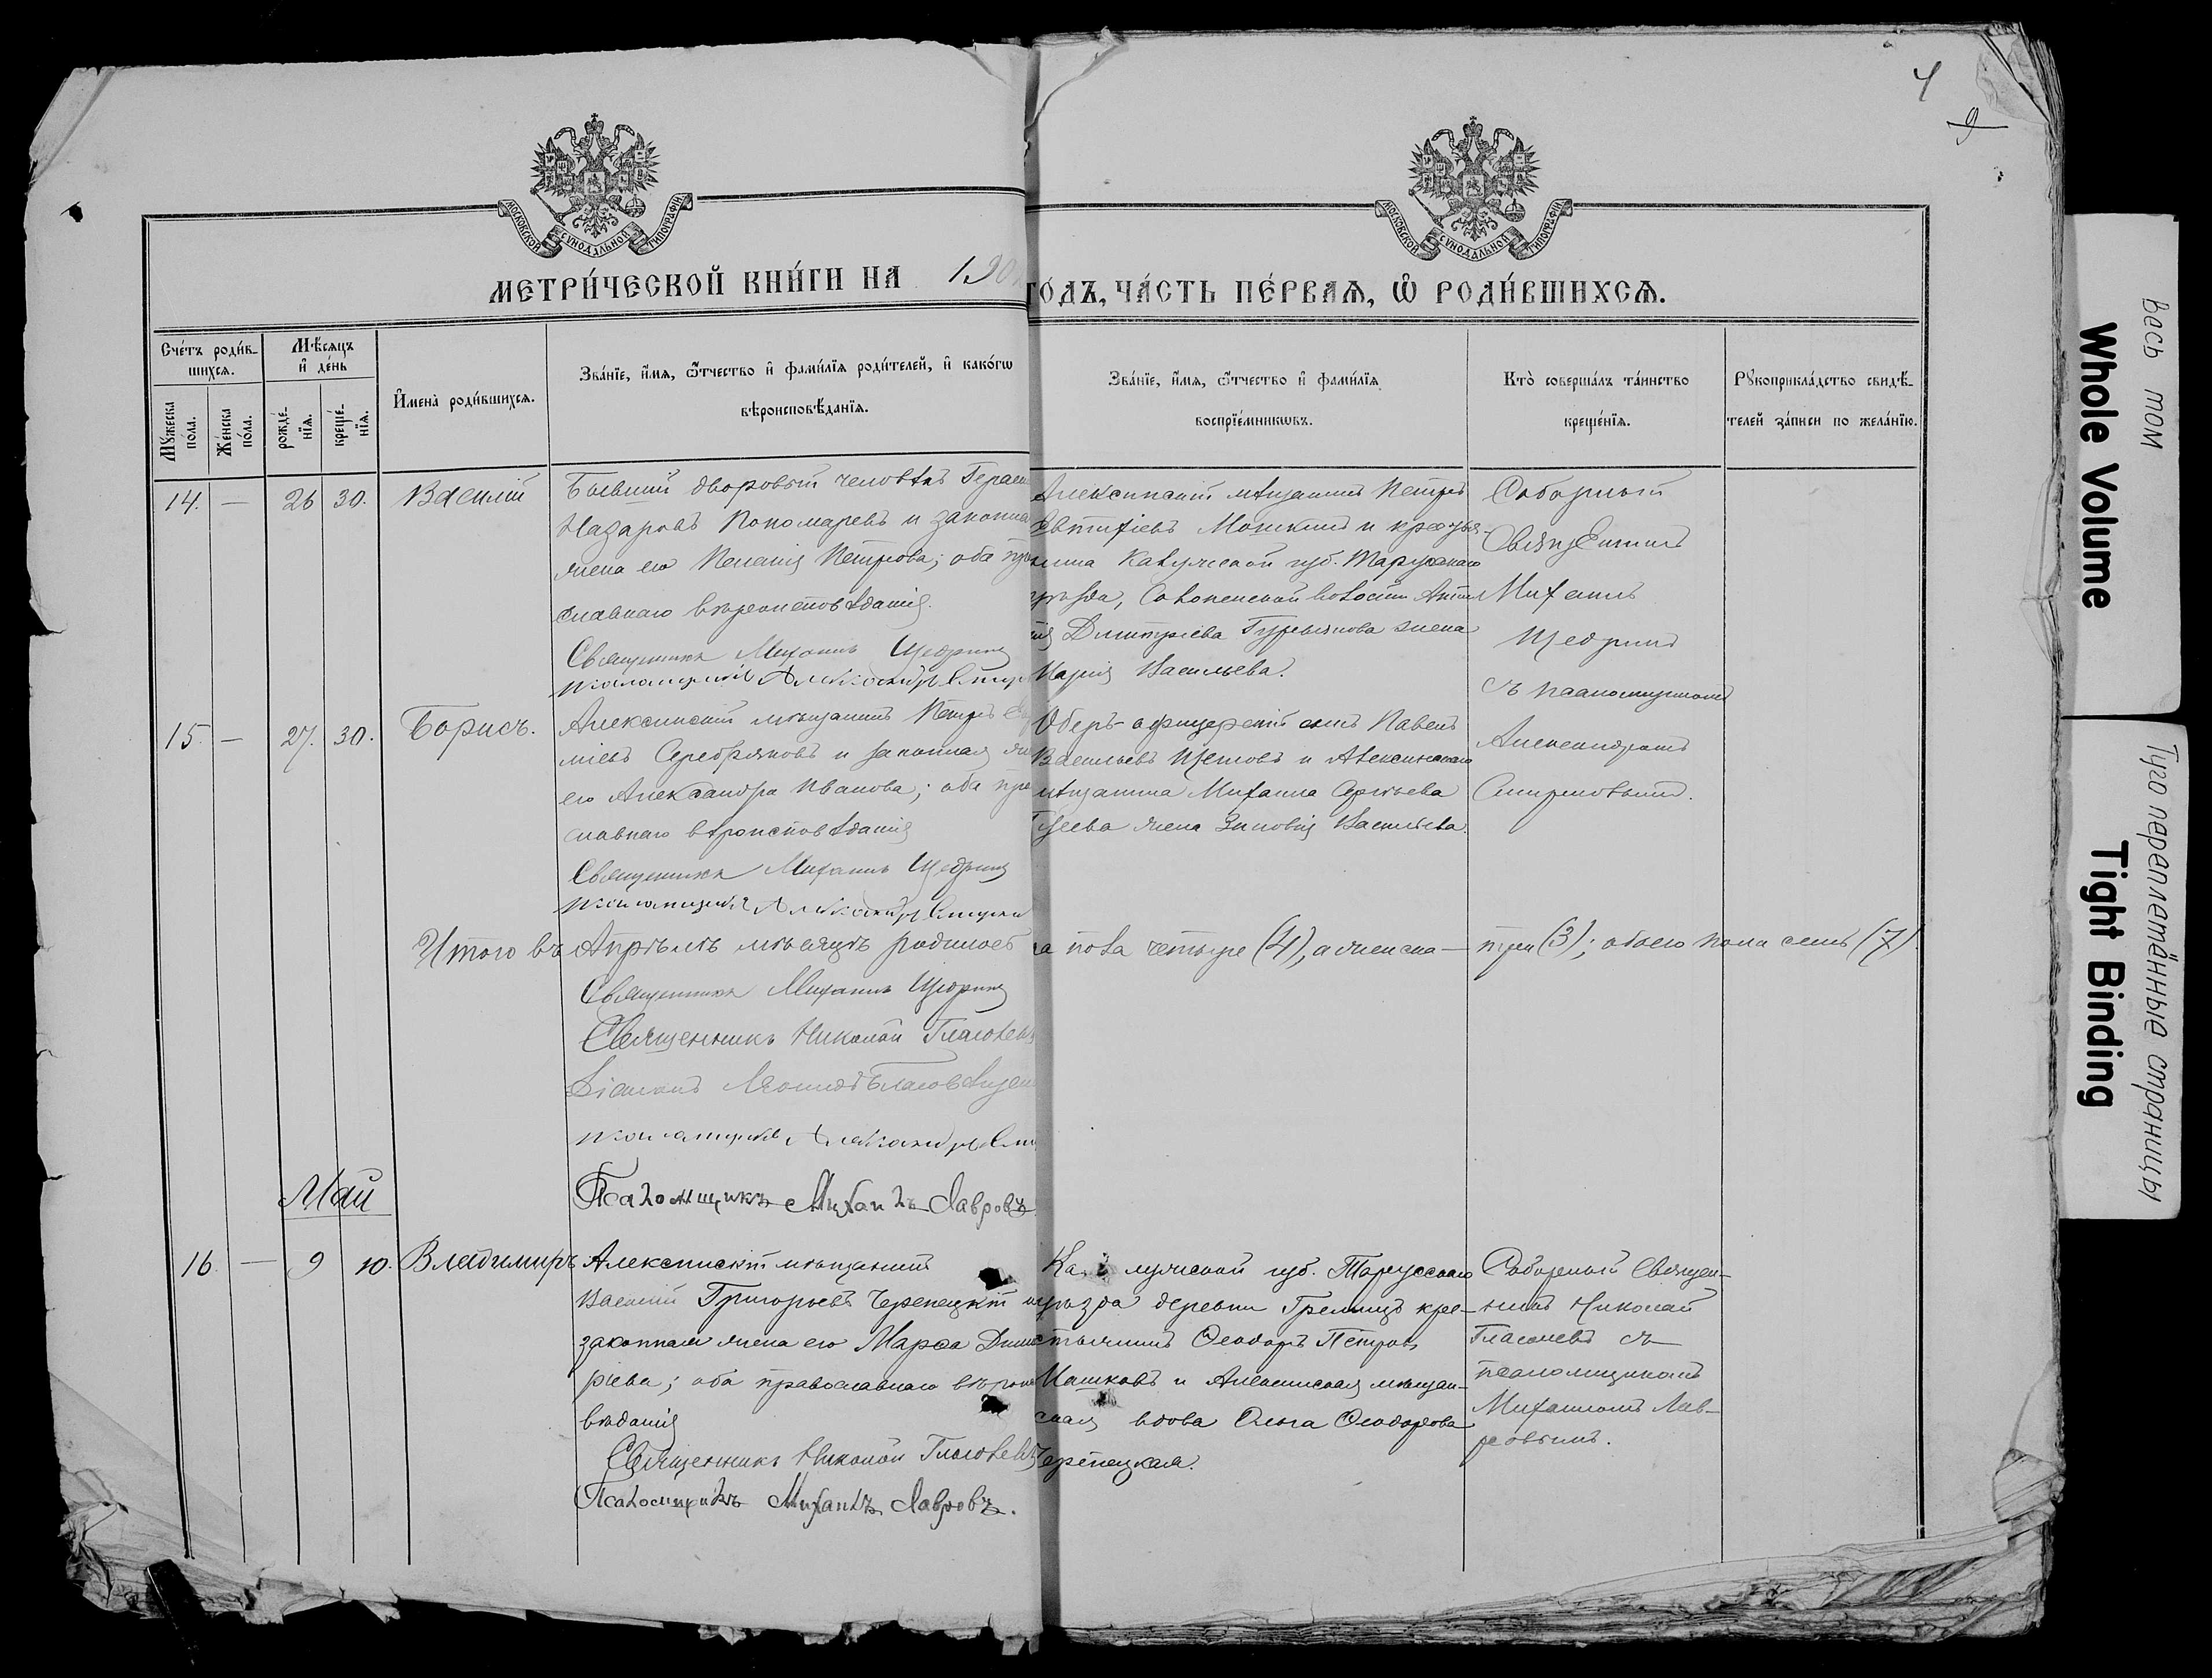 4
9
МОСКОВСКОЙ СѴНОДАЛЬНОЙ ТИПОГРАФІИ
МОСКОВСКОЙ СѴНОДАЛЬНОЙ ТИПОГРАФІИ
МЕТРИ́ЧЕСКОЙ КНИ́ГИ НА 190
ГО́ДЪ, ЧА́СТЬ ПЕ́РВАѦ, Ѡ҆ РОДИ́ВШИХСѦ.
Сче́тъ роди́в-
шихсѧ.
Мѣ́сѧцъ
и҆ де́нь
И҆мена̀ роди́вшихсѧ.
Зва́нїе, и҆́мѧ, ѻ҆́тчество и҆ фами́лїѧ роди́телей, и҆ како́гѡ
вѣроисповѣ́данїѧ.
Мꙋ́жеска
по́ла.
Же́нска
по́ла.
рожде́-
нїѧ.
креще́-
нїѧ.
Зва́нїе, и҆́мѧ, ѻ҆́тчество и҆ фами́лїѧ
воспрїе́мникѡвъ.
Кто̀ соверша́лъ та́инство
креще́нїѧ.
Рꙋкоприкла́дство свидѣ́-
телей за́писи по жела́нїю.
14. — 26 30. Василій
Бывшій дворовый человѣкъ Герас
Назаровъ Пономаревъ и законна
жена его Пелагія Петрова; оба пра
славнаго вѣроисповѣданія.
Священникъ Михаилъ Щедринъ
Псаломщикъ Александръ Смир
Алексинскій мѣщанинъ Петръ
Евтифіевъ Мошкинъ и крестья-
нина Калужской губ. Тарускаго
уѣзда, Сологенской волости
Димитріева Гурьянова жена
Марія Васильева.
Соборный
Священникъ
Михаилъ
Щедринъ
съ псаломщикомъ
Александромъ
Смирновымъ.
15. — 27. 30. Борисъ.
Алексинскій мѣщанинъ Петръ
міевъ Серебряковъ и законная же
его Александра Иванова; оба пра
славнаго вѣроисповѣданія
Священникъ Михаилъ Щедринъ
Псаломщикъ Александръ Смирно
Оберъ-офицерскій сынъ Павелъ
Васильевъ Щегловъ и Алексинскаго
мѣщанина Михаила Сергѣева
Гусева жена Зиновія Васильева.
Итого въ Апрѣлѣ мѣсяцѣ родилось
а пола четыре (4), а женска — три (3); обоего пола семь (7)
Священникъ Михаилъ Щедринъ
Священникъ Николай Глаголевъ
Діаконъ Леонидъ Благовѣщен
Псаломщикъ Александръ Сми
Псаломщикъ Михаилъ Лавровъ
Май
16. — 9 10. Владимиръ
Алексинскій мѣщанинъ
Василій Григорьевъ Черепецкій и
законная жена его Марѳа Дими
ріева; оба православнаго вѣроис
вѣданія
Священникъ Николай Глаголевъ
Псаломщикъ Михаилъ Лавровъ.
Калужской губ. Тарусскаго
уѣзда деревни Гремицъ кре-
стьянинъ Ѳеодоръ Петровъ
Машковъ и Алексинская мѣщан-
ская вдова Ольга Ѳеодорова
Черепецкая.
Соборный Священ-
никъ Николай
Глаголевъ съ
псаломщикомъ
Михаиломъ Лав-
ровымъ.
весь том
Whole Volume
Туго переплетённые страницы
Tight Binding